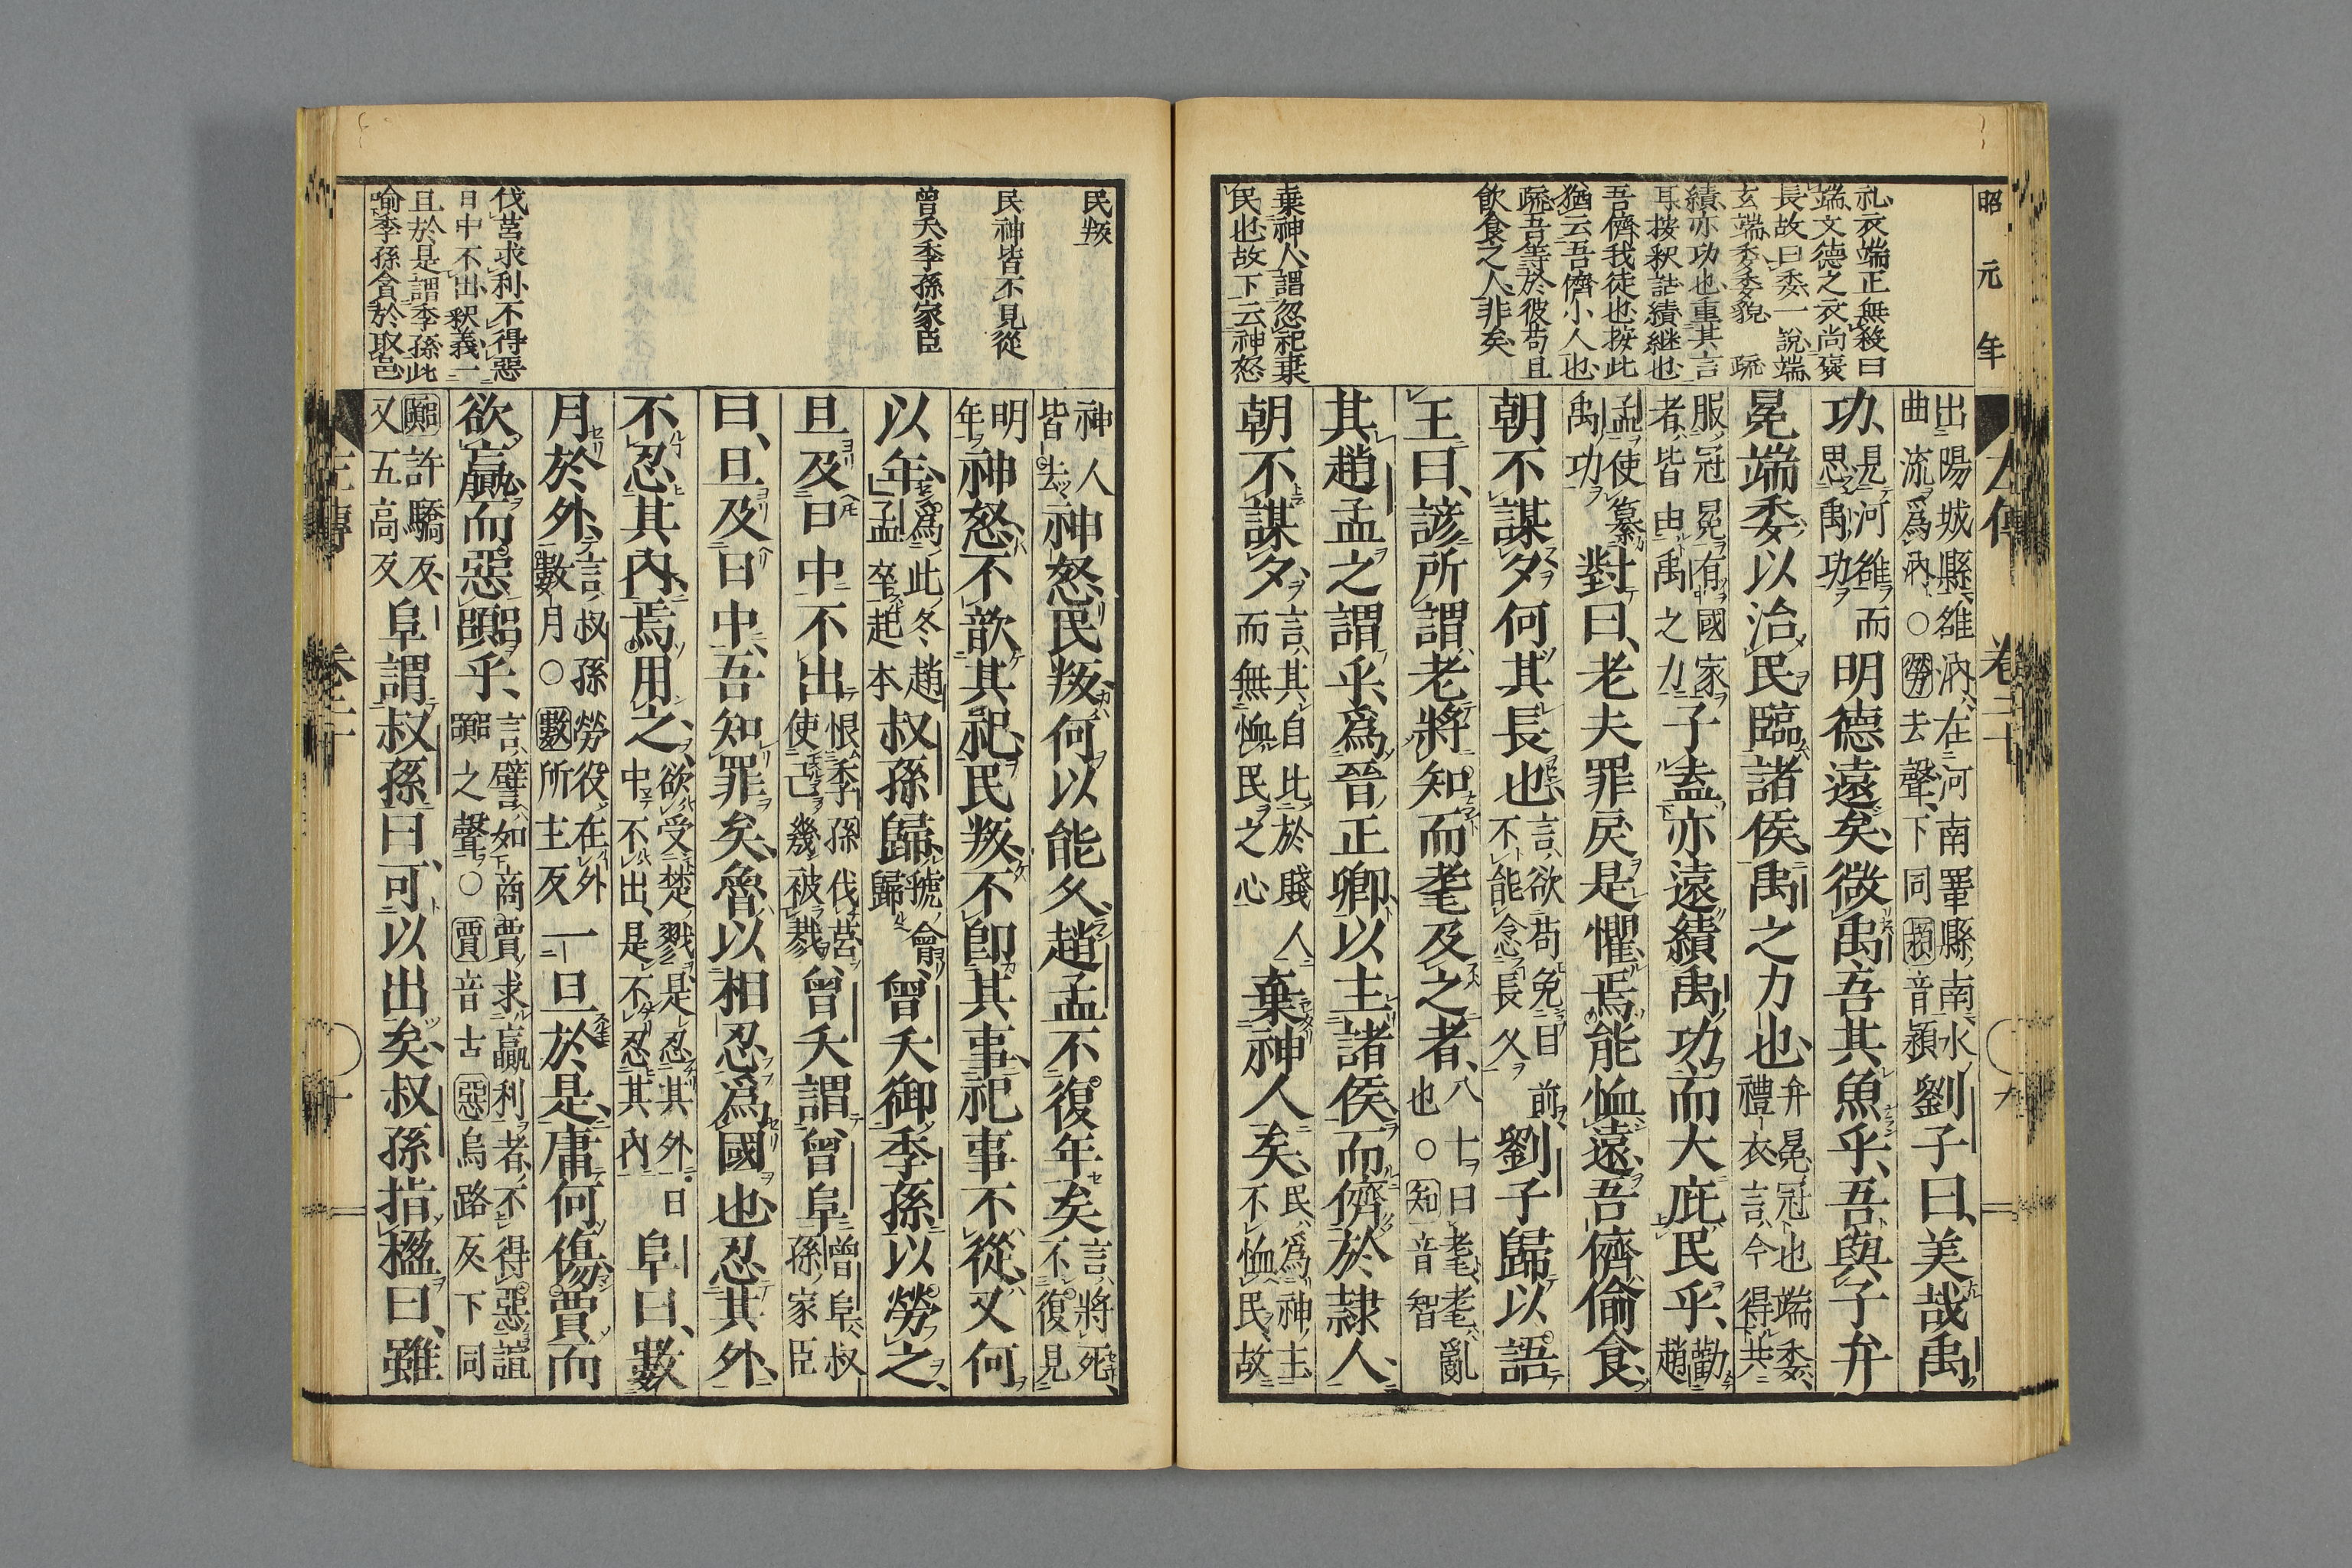 昭元年
礼衣端正無殺曰
端文德之衣尚褒
長故曰委一說端
玄端委委貌 疏
績亦功也重其言
耳按釈詁績継也
吾儕我徒也按此
猶云吾儕小人也
疏吾等於彼苟且
飲食之人非矣
棄神人謂忽祀棄
民也故下云神怒
出陽城縣雒汭在河南鞏縣南水曲流爲汭○勞去聲下同潁音潁劉子曰美哉禹
功見河雒而思禹功明德遠矣微禹吾其魚乎吾與子弁
冕端委以治民臨諸侯禹之力也弁冕冠也端委禮衣言今得共
服冠冕有國家者皆由禹之力子盍亦遠績禹功而大庇民乎勸趙
孟使纂禹功對曰老夫罪戾是懼焉能恤遠吾儕偷食
朝不謀夕何其長也言欲苟免目前不能念長久劉子歸以語
王曰諺所謂老將知而耄及之者八十曰耄耄亂也○知音智
其趙孟之謂乎爲晉正卿以主諸侯而儕於隸人
朝不謀夕言其自比於賤人而無恤民之心棄神人矣民爲神主不恤民故
民叛
民神皆不見從
曾夭季孫家臣
伐莒求利不得惡
日中不出釈義一
且於是謂季孫此
喻季孫貪於取邑
神人皆去神怒民叛何以能久趙孟不復年矣言將死不復見
明年神怒不歆其祀民叛不卽其事祀事不從又何
以年爲此冬趙孟卒起本叔孫歸虢會歸曾夭御季孫以勞之
旦及日中不出恨季孫伐莒使己幾被戮曾夭謂曾阜曾阜叔孫家臣
曰旦及日中吾知罪矣魯以相忍爲國也忍其外
不忍其內焉用之欲受楚戮是忍其外日中不出是不忍其內阜曰數
月於外言叔孫勞役在外數月○數所主反一旦於是庸何傷賈而
欲贏而惡嚻乎言譬如商賈求贏利者不得惡諠嚻之聲○賈音古惡烏路反下同
嚻許驕反又五高反阜謂叔孫曰可以出矣叔孫指楹曰雖